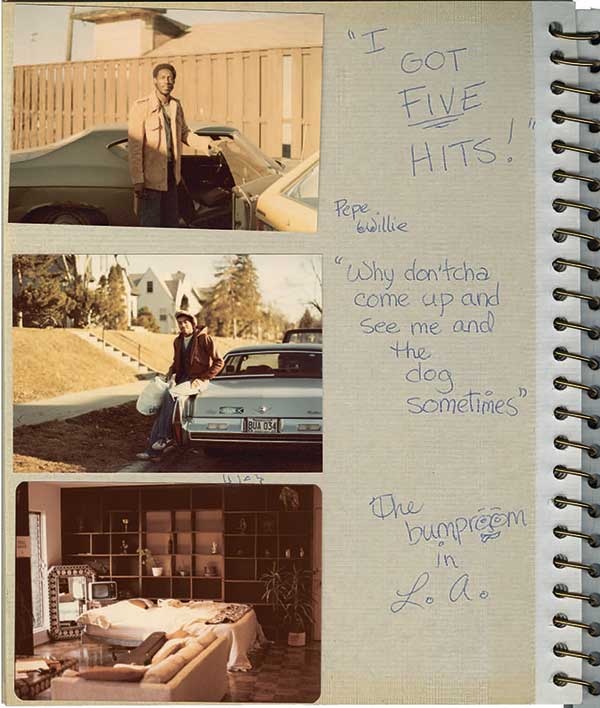 "I
GOT
FIVE
HITS!"
Pepe
& Willie
"Why don'tcha
come up and
see me and
the
dog
sometimes"
BUA 034
The
bumproom
in
L. A.